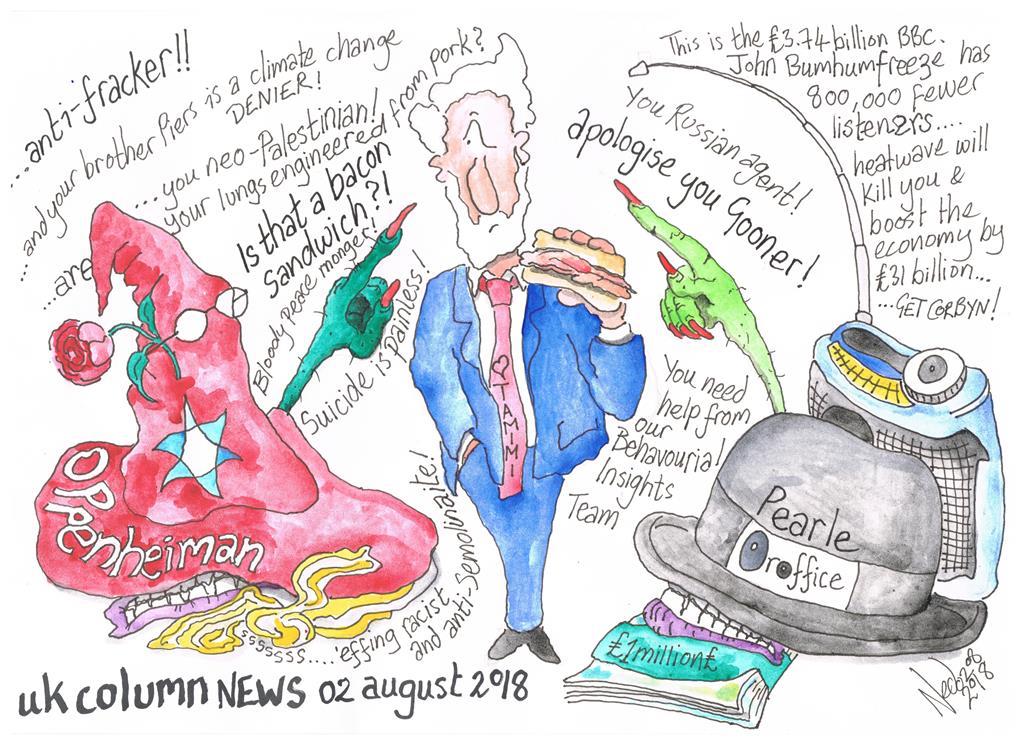 ...anti-fracker!!
...and your brother Piers is a climate change
DENIER!
...you neo-Palestinian!
...are your lungs engineered from pork?
Is that a bacon
Sandwich?!
Bloody peace monger!
Suicide is painless!
This is the £3.74 billion BBC.
John Bumhumfreeze has
800,000 fewer
listeners....
heatwave will
kill you &
boost the
economy by
£31 billion...
...GET CORBYN!
You Russian agent!
apologise you Gooner!
You need
help from
our
Behavourial
Insights
Team
TAMIMI
OPPenheiman
Pearle
Oroffice
£1million£
sssssss....'effing racist
and anti-Semolinaite!
uk column NEWS 02 august 2018
2018